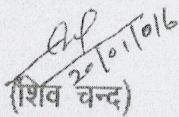 20/01/016
(शिव चन्द)